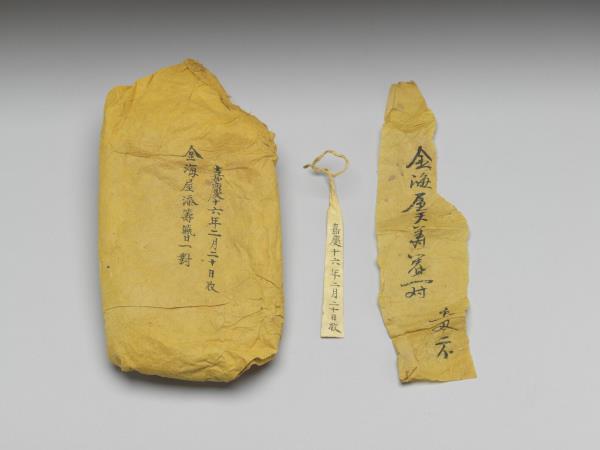 嘉慶十六年二月二十日收
金海屋添籌簪一對
嘉慶十六年二月二十日收
金海屋天簪一对